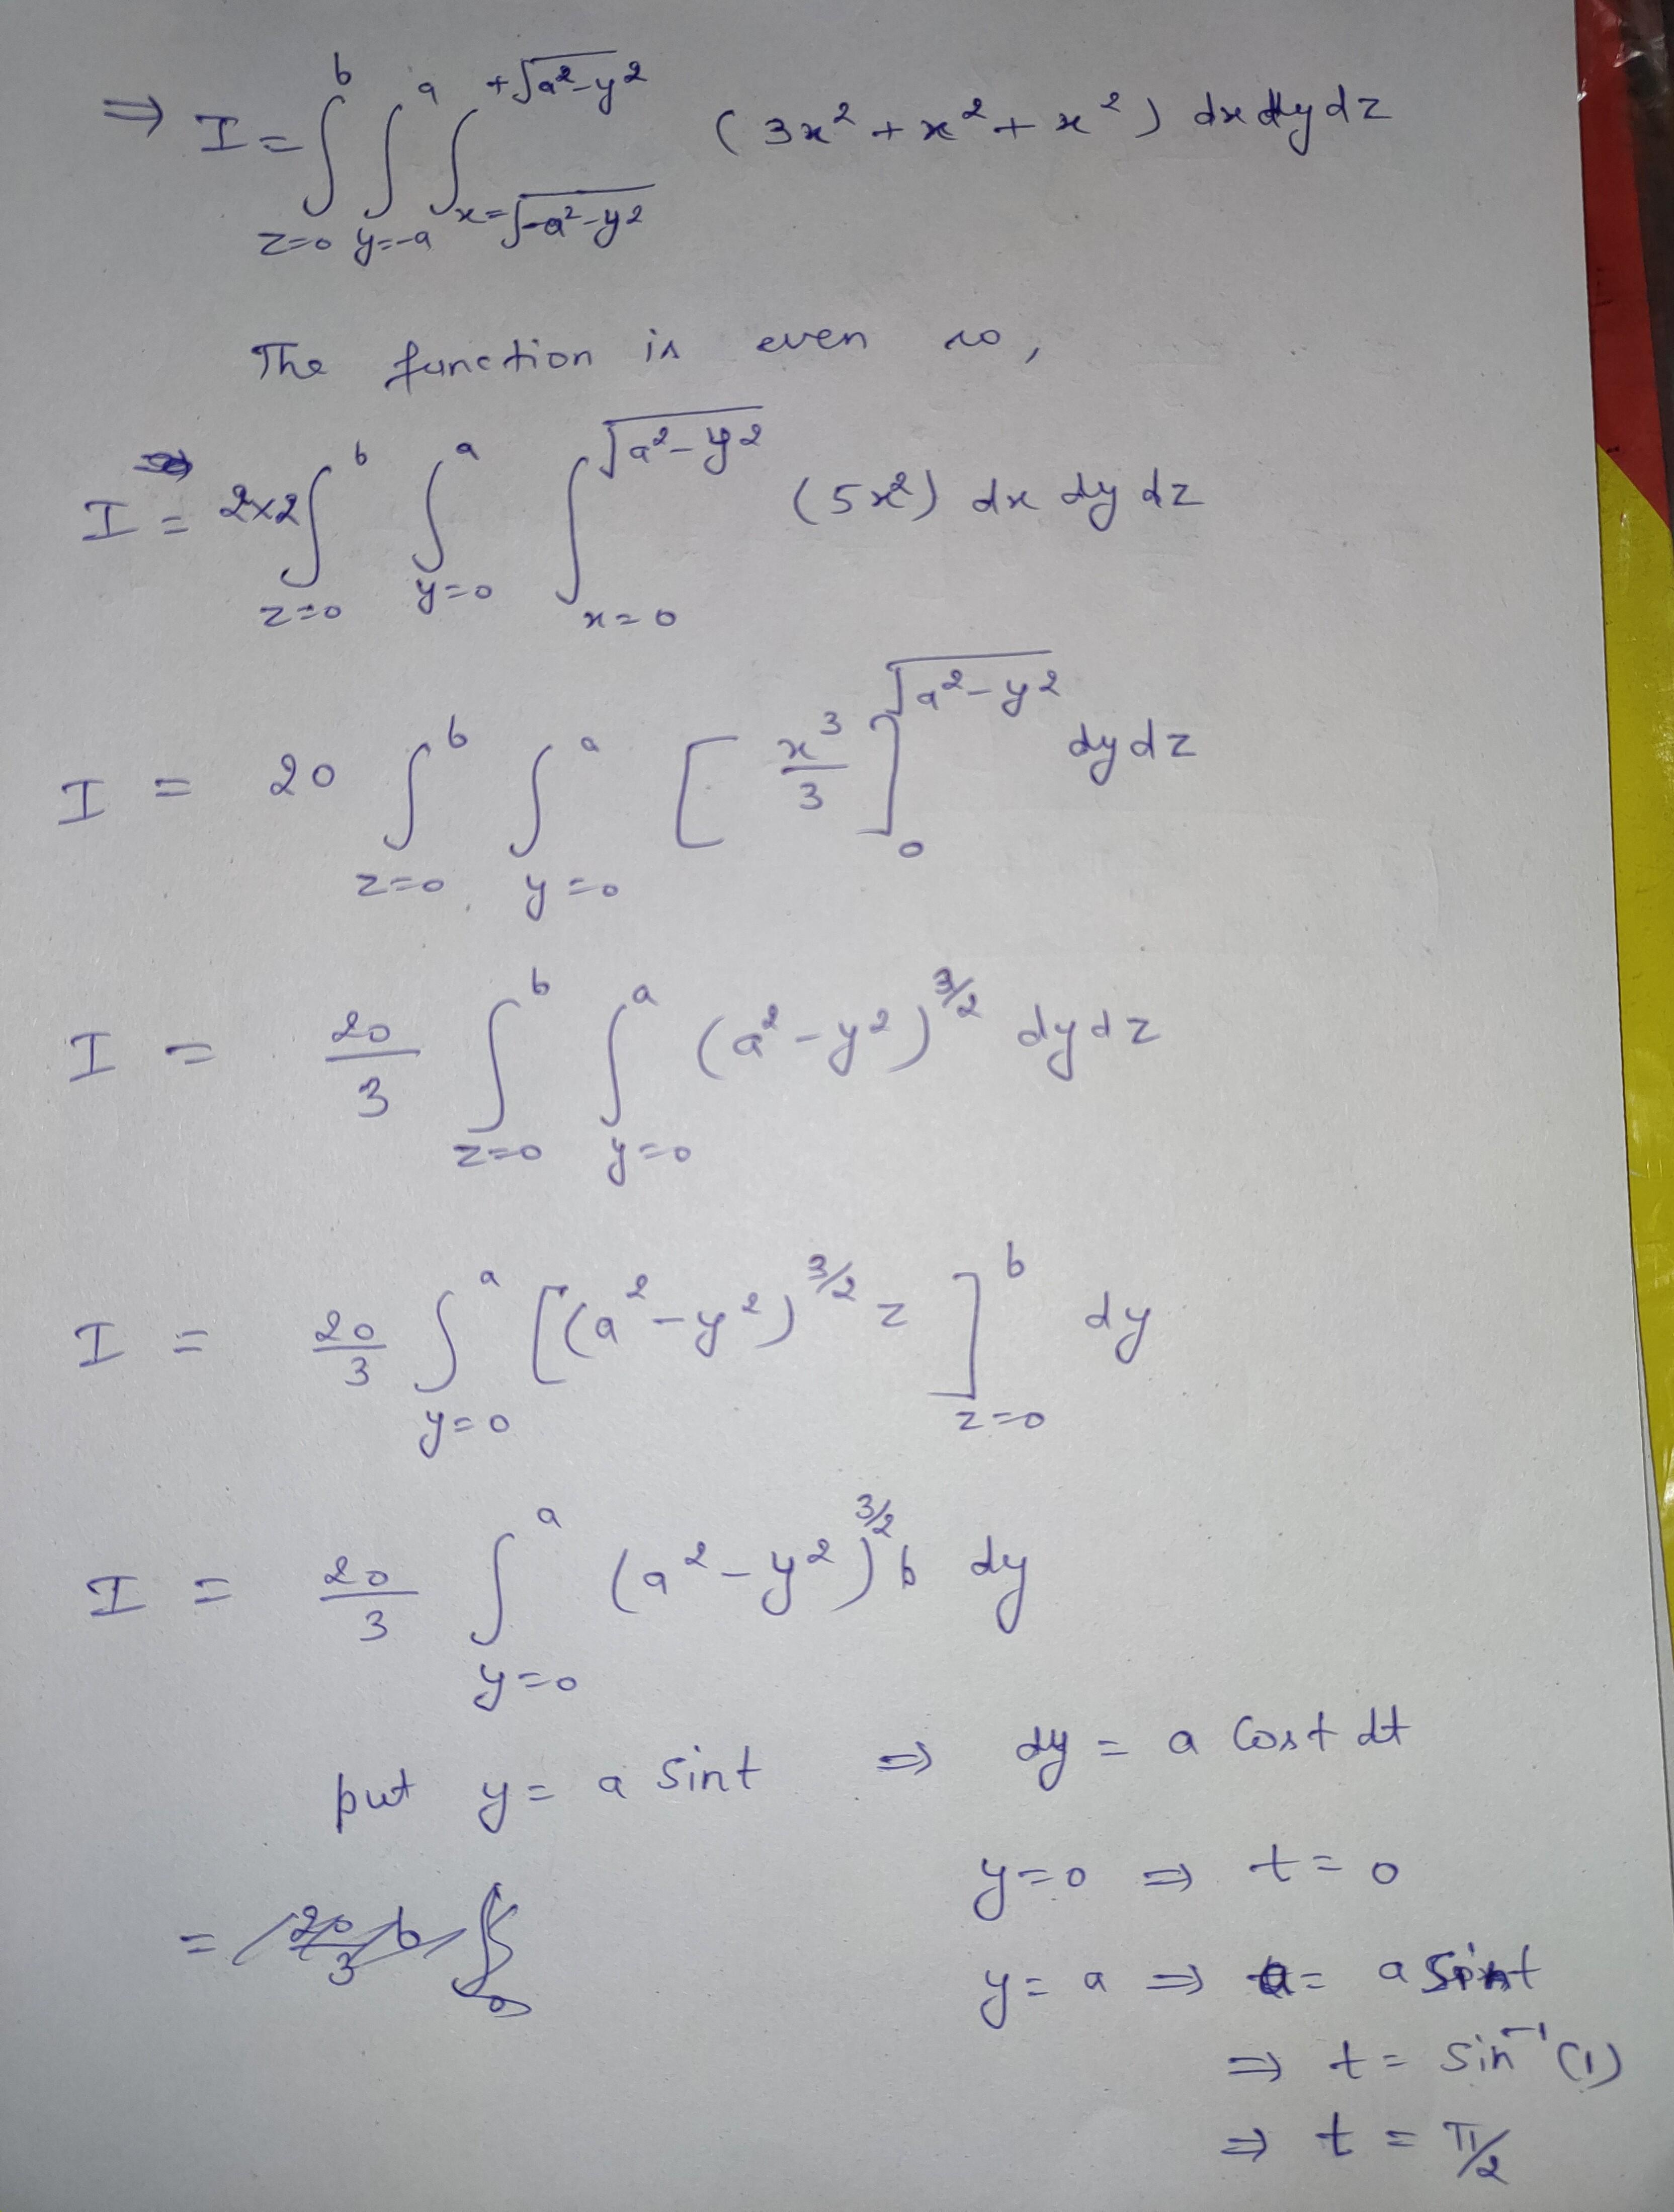 ⇒ I = ∫_{z=0}^{b} ∫_{y=-a}^{a} ∫_{x=√(-a²-y²)}^{+√(a²-y²)} (3x² + x² + x²) dx dy dz
The function is even so,
I = 2×2 ∫_{z=0}^{b} ∫_{y=0}^{a} ∫_{x=0}^{√(a²-y²)} (5x²) dx dy dz
I = 20 ∫_{z=0}^{b} ∫_{y=0}^{a} [x³/3]_{0}^{√(a²-y²)} dy dz
I = 20/3 ∫_{z=0}^{b} ∫_{y=0}^{a} (a²-y²)^{3/2} dy dz
I = 20/3 ∫_{y=0}^{a} [(a²-y²)^{3/2} z]_{z=0}^{b} dy
I = 20/3 ∫_{y=0}^{a} (a²-y²)^{3/2} b dy
put y = a sint ⇒ dy = a cost dt
y=0 ⇒ t=0
=
y = a ⇒ a = a sint
⇒ t = sin⁻¹(1)
⇒ t = π/2